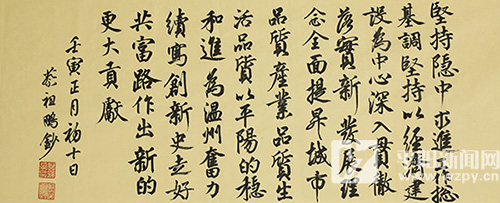 堅持隱中求進工總
基調堅持以經濟建
設為中心深入貫徹
落實新發展理
念全面提昇城市
品質產業品質生
活品質以平陽的穩
和進為温州奮力
續寫創新史走好
共富路作出新的
更大貢獻
壬寅正月初十日
蔡祖鵬鈔
新闻网